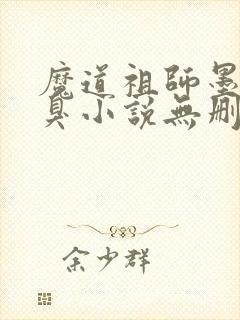 魔道祖師墨
臭小說無刪
余少群